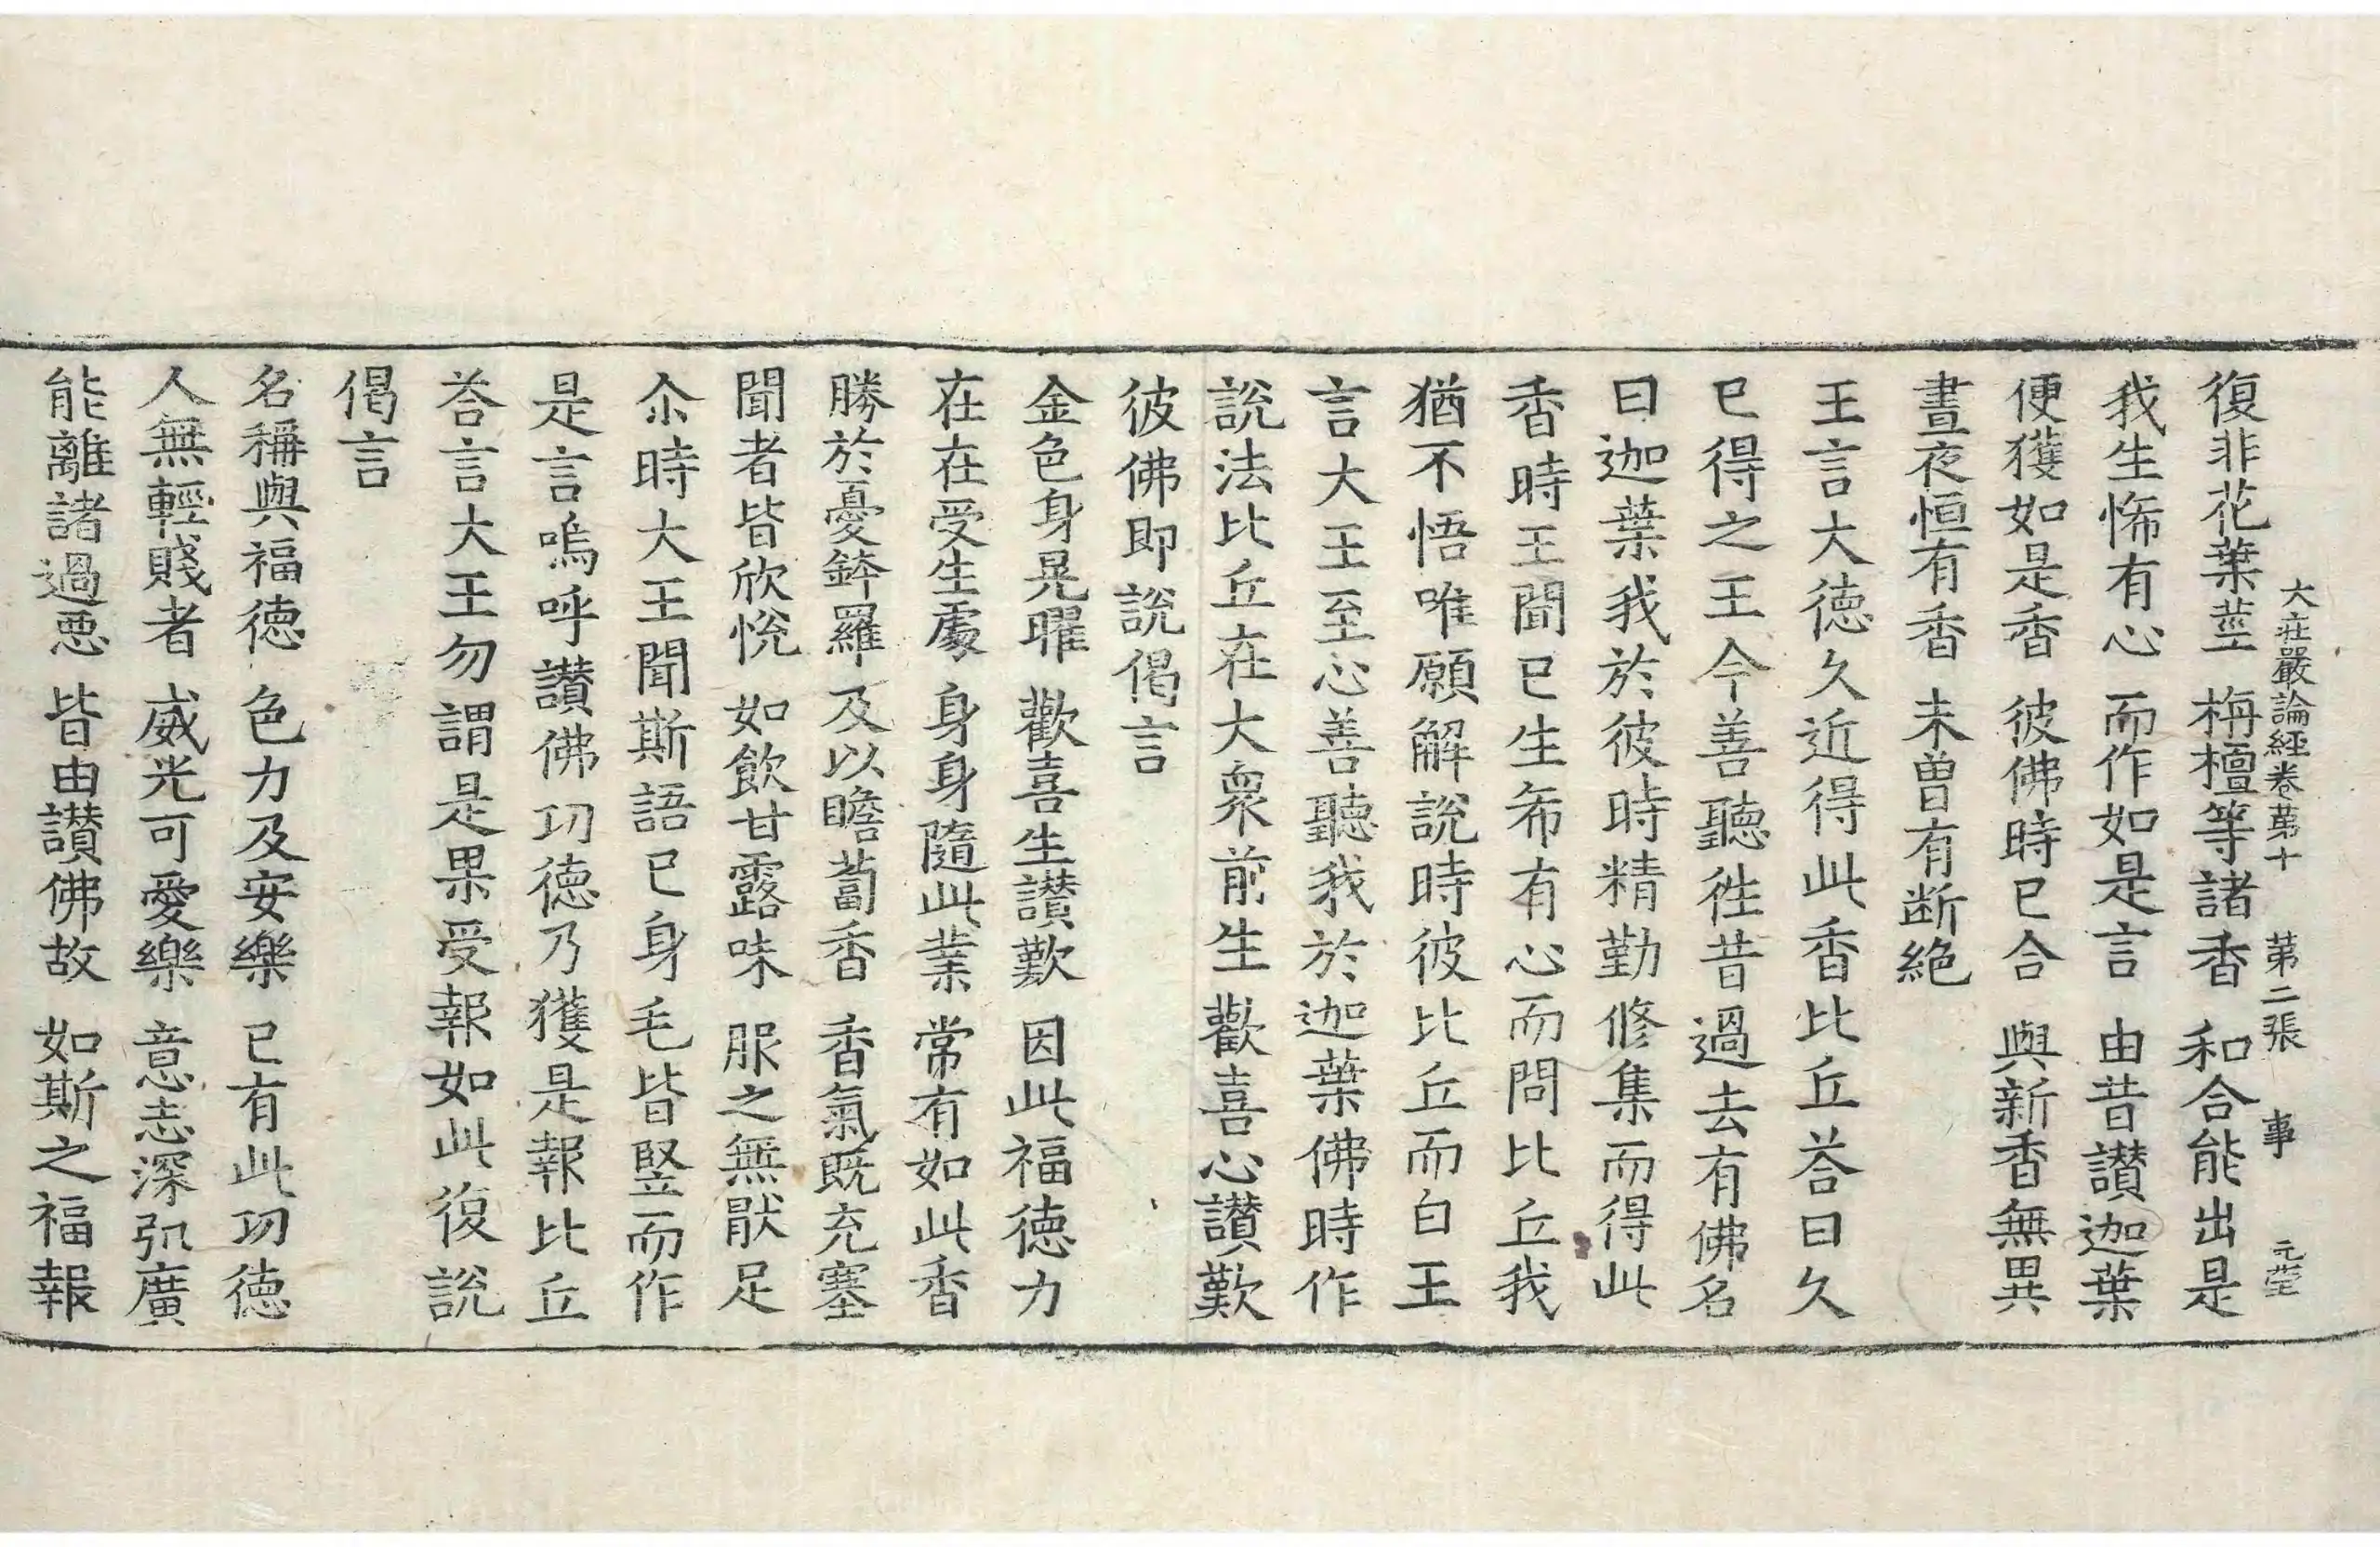 大莊嚴論經卷苐十　苐二張　事　元瑩
復非花葉莖　栴檀等諸香　和合能出是
我生悕有心　而作如是言　由昔讃迦葉
便獲如是香　彼佛時已合　與新香無異
晝夜恒有香　未曽有断絶
王言大徳久近得此香比丘荅曰久
已得之王今善聽徃昔過去有佛名
曰迦葉我於彼時精勤修集而得此
香時王聞已生希有心而問比丘我
猶不悟唯願解說時彼比丘而白王
言大王至心善聽我於迦葉佛時作
說法比丘在大衆前生歡喜心讃歎
彼佛即說偈言
金色身晃曜　歡喜生讃歎　因此福徳力
在在受生處　身身隨此業　常有如此香
勝於憂鉢羅　及以瞻蔔香　香氣既充塞
聞者皆欣悅　如飲甘露味　服之無猒足
尒時大王聞斯語已身毛皆竪而作
是言嗚呼讃佛功徳乃獲是報比丘
荅言大王勿謂是果受報如此復說
偈言
名稱與福徳　色力及安樂　已有此功徳
人無輕賤者　威光可愛樂　意志深弘廣
能離諸過惡　皆由讃佛故　如斯之福報